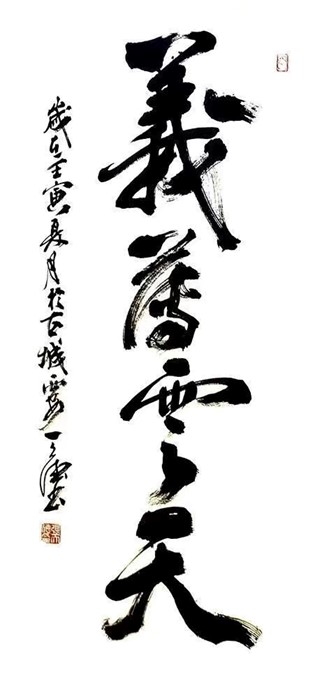 義薄雲天
歲在壬寅夏月於古城